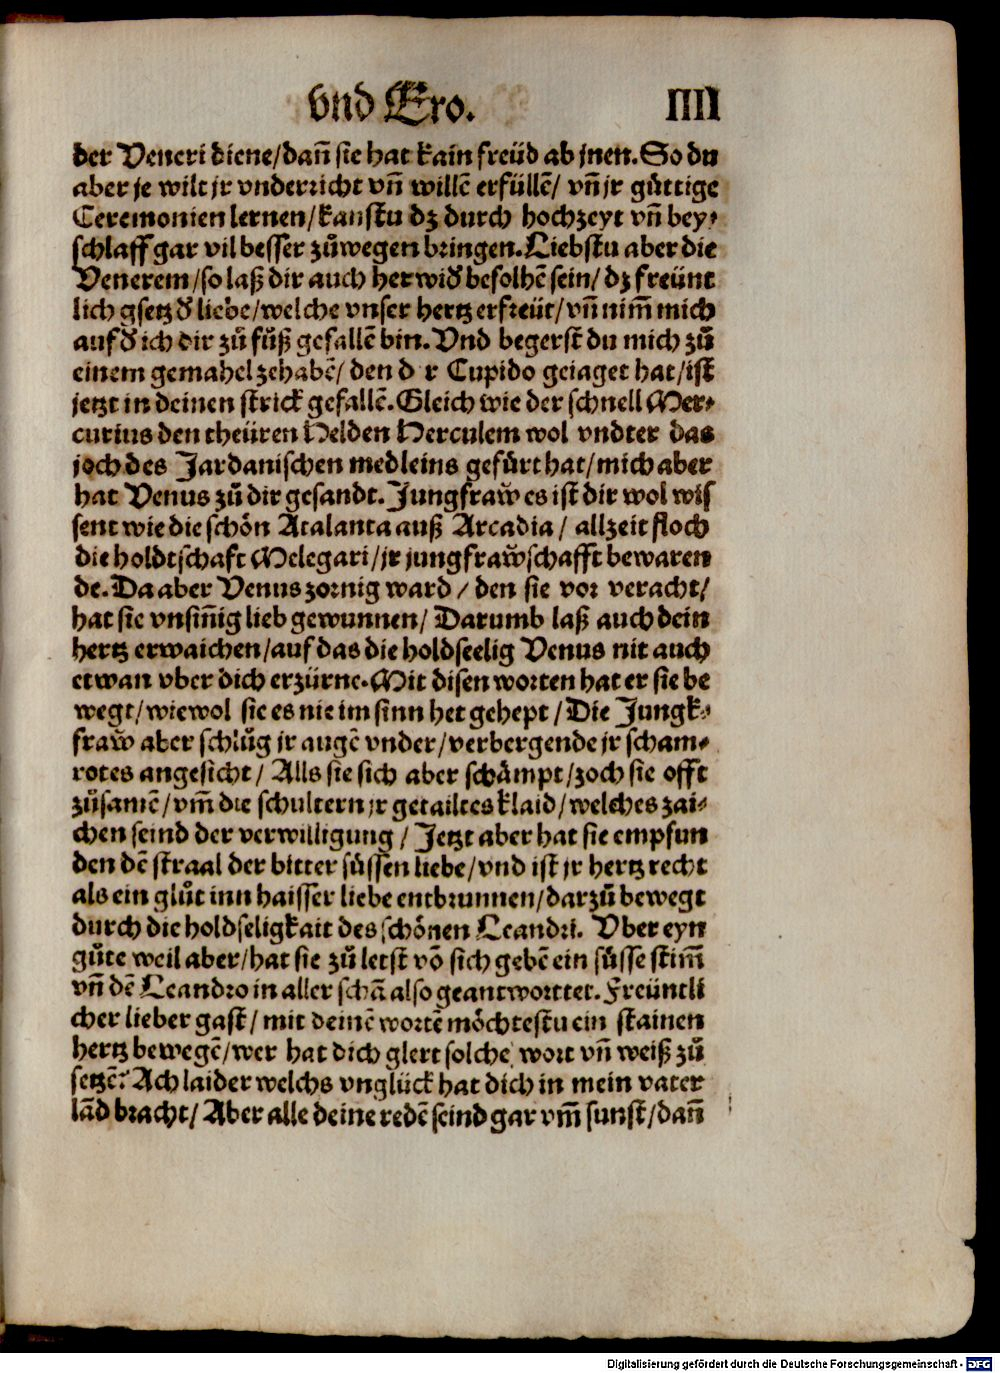 vnd Ero. IIII
der Veneri diene/dañ sie hat kain freüd ab jnen. So du
aber je wilt jr vnderricht vñ willē erfüllē/ vñ jr gůttige
Ceremonien lernen/kanstu dz durch hochzeyt vñ bey⸗
schlaff gar vil besser zůwegen bringen. Liebstu aber die
Venerem/so laß dir auch herwið befolhē sein/ dz freünt
lich gsetz ð liebe/welche vnser hertz erfreüt/vñ nim̃ mich
auf ð ich dir zů fůß gefallē bin. Vnd begerst du mich zů
einem gemahel zehabē/ den d r Cupido geiaget hat/ist
jetzt in deinen strick gefallē. Gleich wie der schnell Mer⸗
curius den theüren Helden Herculem wol vndter das
joch des Jardanischen medleins gefürt hat/mich aber
hat Venus zů dir gesandt. Jungfraw̃ es ist dir wol wis
sent wie die schön Atalanta auß Arcadia/ allzeit floch
die holdtschaft Melegari/jr jungfraw̃schafft bewaren
de. Da aber Venus zornig ward/ den sie vor veracht/
hat sie vnsiñig lieb gewunnen/ Darumb laß auch dein
hertz erwaichen/auf das die holdseelig Venus nit auch
etwan vber dich erzürne. Mit disen worten hat er sie be
wegt/wiewol sie es nie im sinn het gehept/ Die Jungk⸗
fraw̃ aber schlůg jr augē vnder/verbergende jr scham⸗
rotes angesicht/ Alls sie sich aber schämpt/zoch sie offt
zůsamē/vm̃ die schultern jr getailtes klaid/welches zai⸗
chen seind der verwilligung/ Jetzt aber hat sie empfun
den dē straal der bitter süssen liebe/vnd ist jr hertz recht
als ein glůt inn haisser liebe entbrunnen/darzů bewegt
durch die holdseligkait des schönen Leandri. Vber eyn
gůte weil aber/hat sie zů letst võ sich gebē ein süsse stim̃
vñ dē Leandro in aller schã also geantworttet. Freüntli
cher lieber gast/ mit deinē wortē möchtestu ein stainen
hertz bewegē/wer hat dich glert solche wort vñ weiß zů
setzē? Ach laider welchs vnglück hat dich in mein vater
lãd bracht/ Aber alle deine redē seind gar vm̃ sunst/dañ
Digitalisierung gefördert durch die Deutsche Forschungsgemeinschaft - DFG